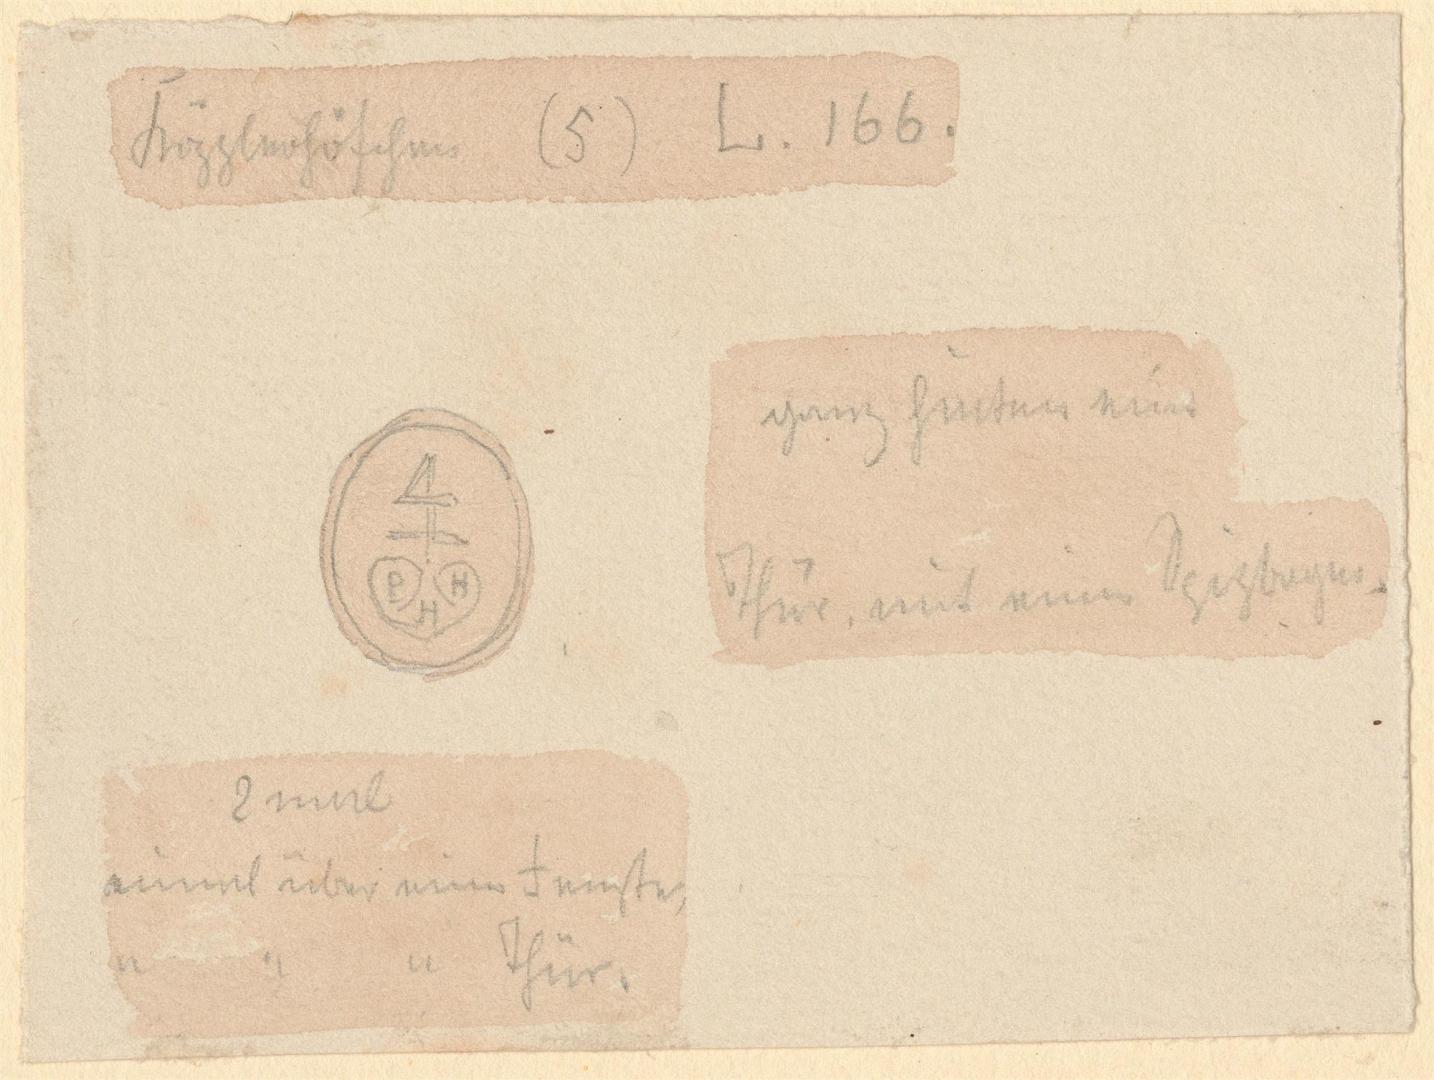 Köpplerhöfchen (5) L. 166.
ganz hinten eine
Thür, mit einem Spizbogen.
P H
H
2 mal
einmal über einem Fenster,
" " " Thür.